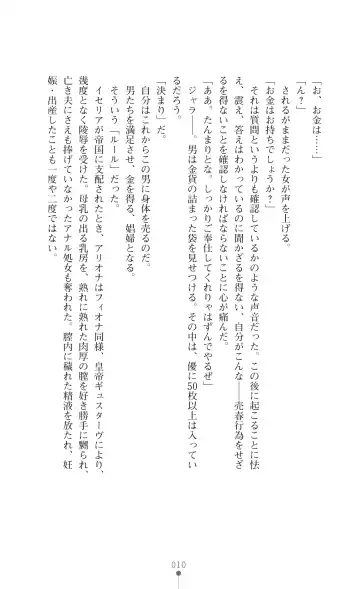 「お、お金は……」
「ん？」
　されるがままだった女が声を上げる。
「お金はお持ちでしょうか？」
　それは質問というよりも確認しているかのような声音だった。この後に起こることに怯
え、震え、答えはわかっているのに聞かざるを得ない、自分がこんな――売春行為をせざ
るを得ないことを確認しなければならないことに心が痛んだ。
「ああ。たんまりとな。しっかりご奉仕してくれりゃはずんでやるぜ」
　ジャラ――。男は金貨の詰まった袋を見せつける。その中は、優に50枚以上は入ってい
るだろう。
「決まり」だ。
　自分はこれからこの男に身体を売るのだ。
　男たちを満足させ、金を得る、娼婦となる。
　そういう「ルール」だった。
　イセリアが帝国に支配されたとき、アリオナはフィオナ同様、皇帝ギュスターヴにより、
幾度となく陵辱を受けた。母乳の出る乳房を、熟れに熟れた肉厚の膣を好き勝手に嬲られ、
亡き夫にさえも捧げていなかったアナル処女も奪われた。膣内に穢れた精液を放たれ、妊
娠・出産したことも一度や二度ではない。
010